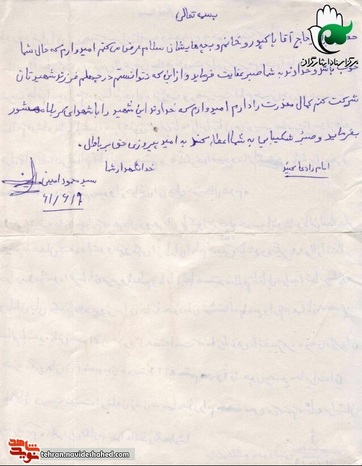 بسمه تعالی
حاج آقا پاکپور و خانم و بچه هایشان سلام عرض می کنم امیدوارم که حال شما
خوب باشد و خداوند به شما صبر عنایت فرماید و از این که نتوانستم در چهلم فرزند شهیدتان
شرکت کنم کمال معذرت را دارم امیدوارم که خداوند این شهید را با شهدای کربلا محشور
بفرماید و صبر و شکیبایی به شما اعطا کند به امید پیروزی حق بر باطل.
امام را دعا کنید
خدا نگهدار شما
سید محمود امینی
۶۱/۶/۹
نوید شاهد
tehran.navideshahed.com